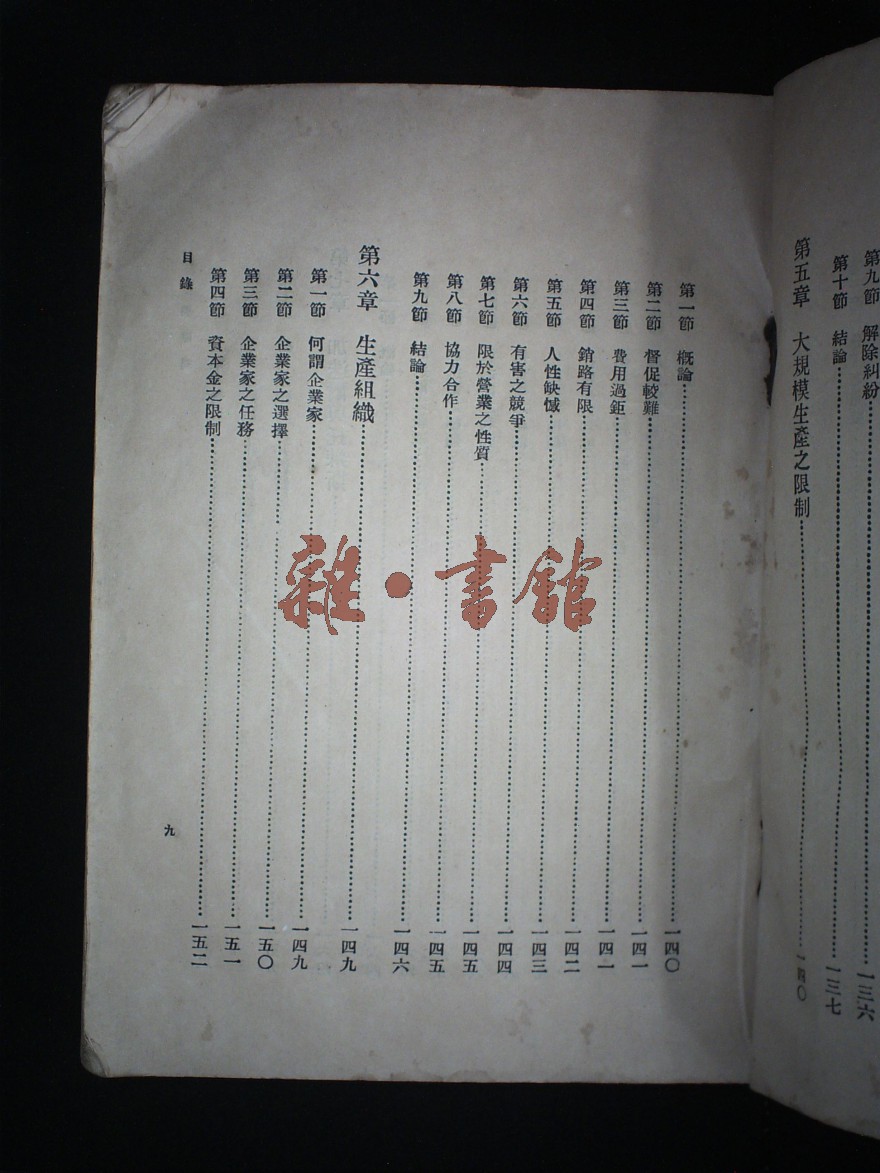 第九節 解除糾紛……一三六
第十節 結論……一三七
第五章 大規模生產之限制……一四〇
第一節 概論……一四〇
第二節 督促較難……一四一
第三節 費用過鉅……一四一
第四節 銷路有限……一四二
第五節 人性缺憾……一四三
第六節 有害之競爭……一四四
第七節 限於營業之性質……一四五
第八節 協力合作……一四五
第九節 結論……一四六
第六章 生產組織……一四九
第一節 何謂企業家……一四九
第二節 企業家之選擇……一五〇
第三節 企業家之任務……一五一
第四節 資本金之限制……一五二
目錄
九
雜·書館